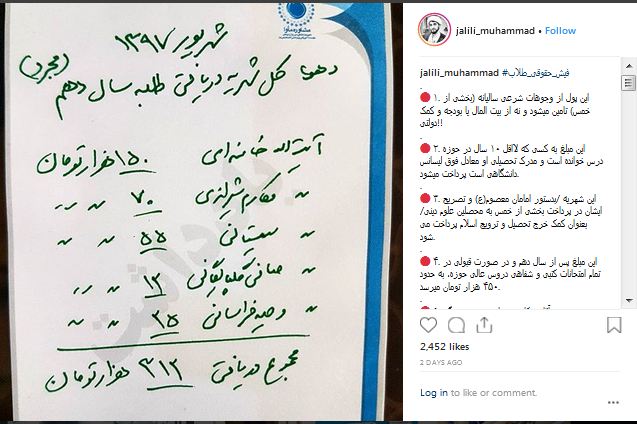 مشاوره ماوا
شهریور ۱۳۹۷
(مجرد)
کل شهریه دریافتی طلبه سال دهم
آیت الله خامنه ای ۱۵۰ هزار تومان
〃 مکارم شیرازی ۷۰ 〃 〃
〃 سیستانی ۵۵ 〃 〃
〃 صافی گلپایگانی ۱۳ 〃 〃
〃 وحید خراسانی ۲۵ 〃 〃
مجموع دریافتی ۳۱۳ هزار تومان
jalili_muhammad • Follow
jalili_muhammad #فیش_حقوقی_طلاب
.
🔴 ۱. این پول از وجوهات شرعی سالیانه (بخشی از
خمس) تامین میشود و نه از بیت المال یا بودجه و کمک
دولتی!!
.
🔴 ۲. این مبلغ به کسی که لااقل ۱۰ سال در حوزه
درس خوانده است و مدرک تحصیلی او معادل فوق لیسانس
دانشگاهی است پرداخت میشود.
.
🔴 ۳. این شهریه /بدستور امامان معصوم(ع) و تصریح
ایشان در پرداخت بخشی از خمس به محصلین علوم دینی/
بعنوان کمک خرج تحصیل و ترویج اسلام پرداخت می
شود.
.
🔴 ۴. این مبلغ پس از سال دهم و در صورت قبولی در
تمام امتحانات کتبی و شفاهی دروس عالی حوزه، به حدود
۴۵۰ هزار تومان میرسد
.
2,452 likes
2 DAYS AGO
Log in to like or comment.